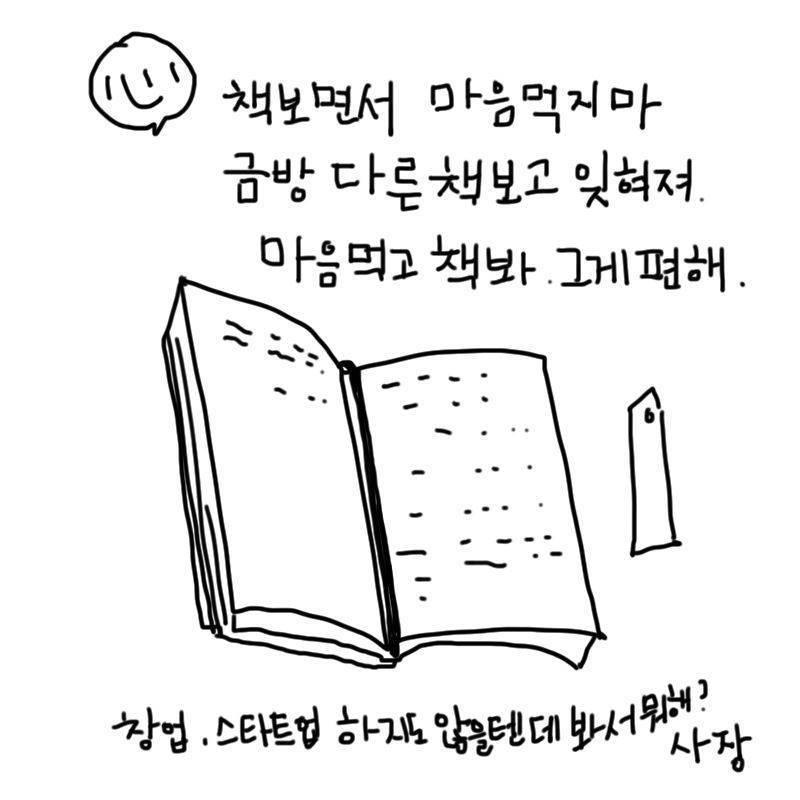 책보면서 마음먹지마
금방 다른책보고 잊혀져.
마음먹고 책봐.그게편해.
창업.스타트업 하지도 않을텐데 봐서뭐해?
사장